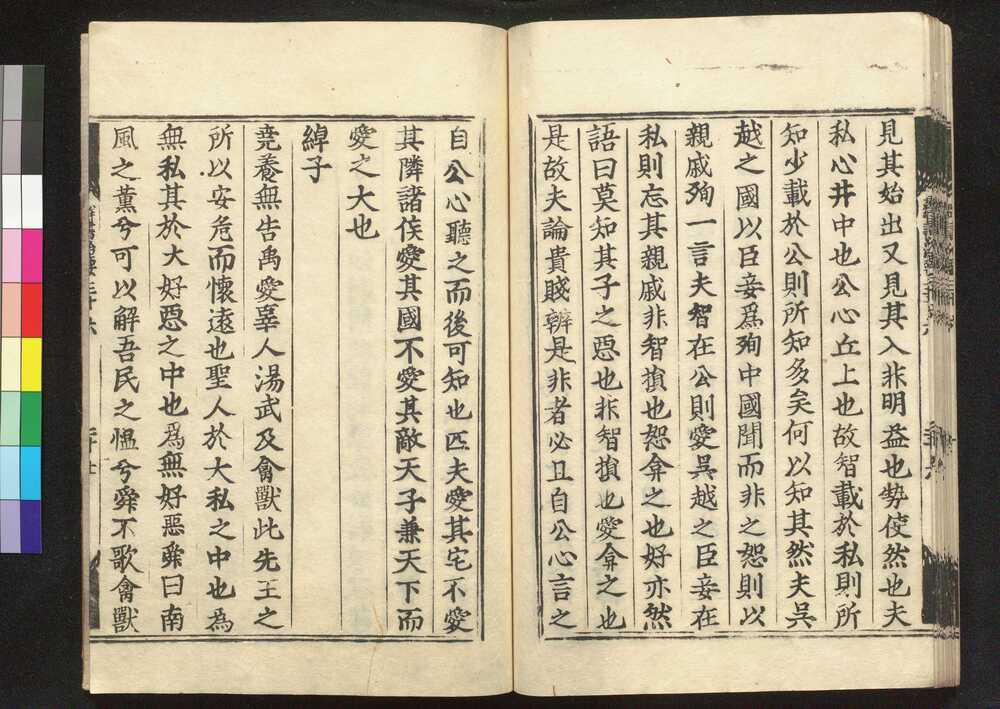 見其始出又見其入非明益也勢使然也夫
私心井中也公心丘上也故智載於私則所
知少載於公則所知多矣何以知其然夫吳
越之國以臣妾爲殉中國聞而非之怒則以
親戚殉一言夫智在公則愛吳越之臣妾在
私則忘其親戚非智損也怒弇之也好亦然
語曰莫知其子之惡也非智損也愛弇之也
是故夫論貴賤辨是非者必且自公心言之
自公心聽之而後可知也匹夫愛其宅不愛
其隣諸侯愛其國不愛其敵天子兼天下而
愛之大也
綽子
堯養無告禹愛辜人湯武及禽獸此先王之
所以安危而懷遠也聖人於大私之中也為
無私其於大好惡之中也爲無好惡舜曰南
風之薰兮可以解吾民之慍兮舜不歌禽獸